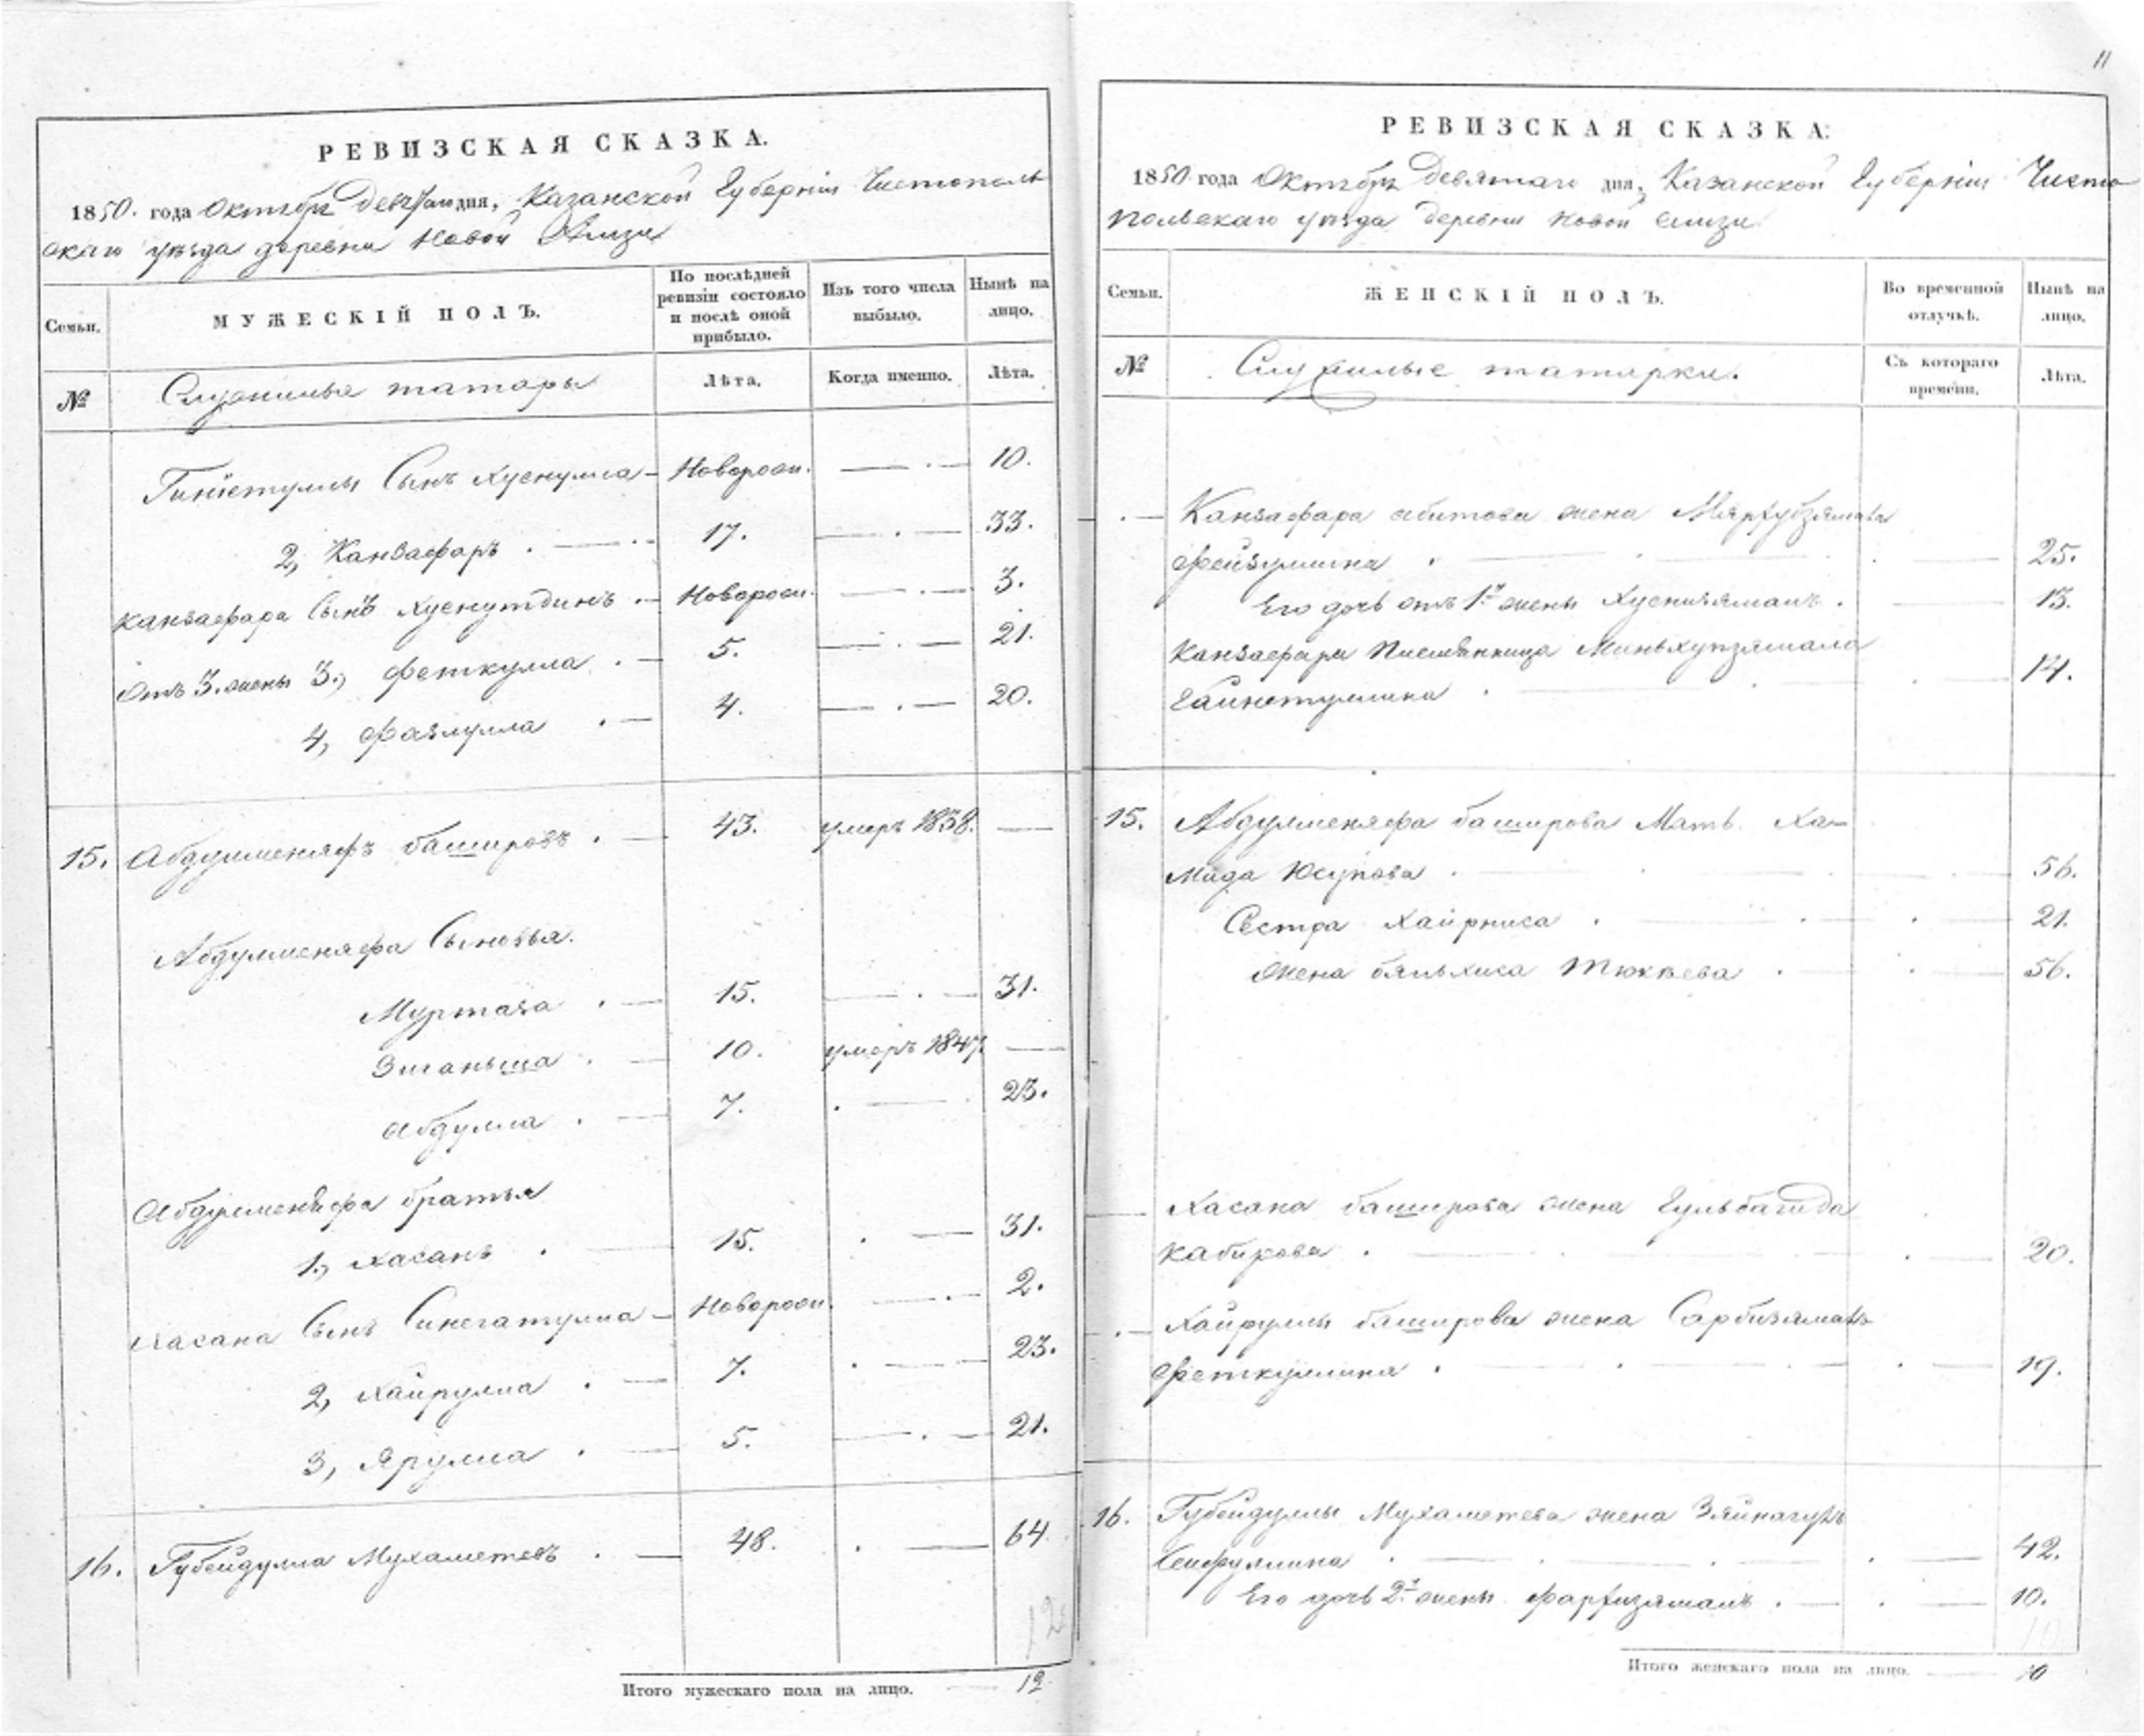 РЕВИЗСКАЯ СКАЗКА.
1850. года Октября Девятаго дня, Казанской Губерніи Чистополь
скаго уѣзда деревни Новой Амзи
Семьи.
МУЖЕСКІЙ ПОЛЪ.
По послѣдней ревизіи состояло и послѣ оной прибыло.
Изъ того числа выбыло.
Нынѣ на лицо.
№
Служилыя татары
Лѣта.
Когда именно.
Лѣта.
Гинietуллы Сынъ Хуснулла - Новорожд. — . — 10.
2, Канзафаръ . — 17. — . — 33.
Канзафара Сынъ Хуснутдинъ . — Новорожд. — . — 3.
Отъ 3. жены 3., Феткулла . — 5. — . — 21.
4, Фазлулла . — 4. — . — 20.
15. Абдулменяфъ Башировъ . — 43. умеръ 1838. —
Абдулменяфа Сыновья.
Муртаза . — 15. — . — 31.
Зиганьша . — 10. умеръ 1847. —
Абдулла . — 7. . — 23.
Абдулменяфа братья
1., Хасанъ . — 15. . — 31.
Хасана Сынъ Синегатулла — Новорожд. — . — 2.
2, Хайрулла . — 7. . — 23.
3, Ярулла . — 5. — . — 21.
16. Губейдулла Мухаметевъ . — 48. . — 64.
12
Итого мужескаго пола на лицо. — 12
11
РЕВИЗСКАЯ СКАЗКА:
1850 года Октября Девятаго дня, Казанской Губерніи Чисто
польскаго уѣзда деревни Новой Амзи
Семьи.
ЖЕНСКІЙ ПОЛЪ.
Во временной отлучкѣ.
Нынѣ на лицо.
№
Служилые татарки.
Съ котораго времени.
Лѣта.
. — Канзафара Абитова жена
Фейзуллина . — . — 25.
Его дочь отъ 1й жены Хуснизямалъ . — 13.
Канзафара Племянница Миньхупзямала
Гайнетуллина . — . — 14.
15. Абдулменяфа Баширова Мать Ха-
мида Юсупова . — . — 56.
Сестра Хайрниса . — . — 21.
Жена Бяльхиса Тюкаева . . — 56.
— Хасана Баширова жена Гульбагида
Кабирова . — . — 20.
. — Хайруллы Баширова жена Сарбизямалъ
Феткуллина . — . — 19.
16. Губейдуллы Мухаметева жена Зяйнагуль
Сейфуллина . — . — 42.
Его дочь 2й жены Фархизямалъ . — . — 10.
10
Итого женскаго пола на лицо. — 10